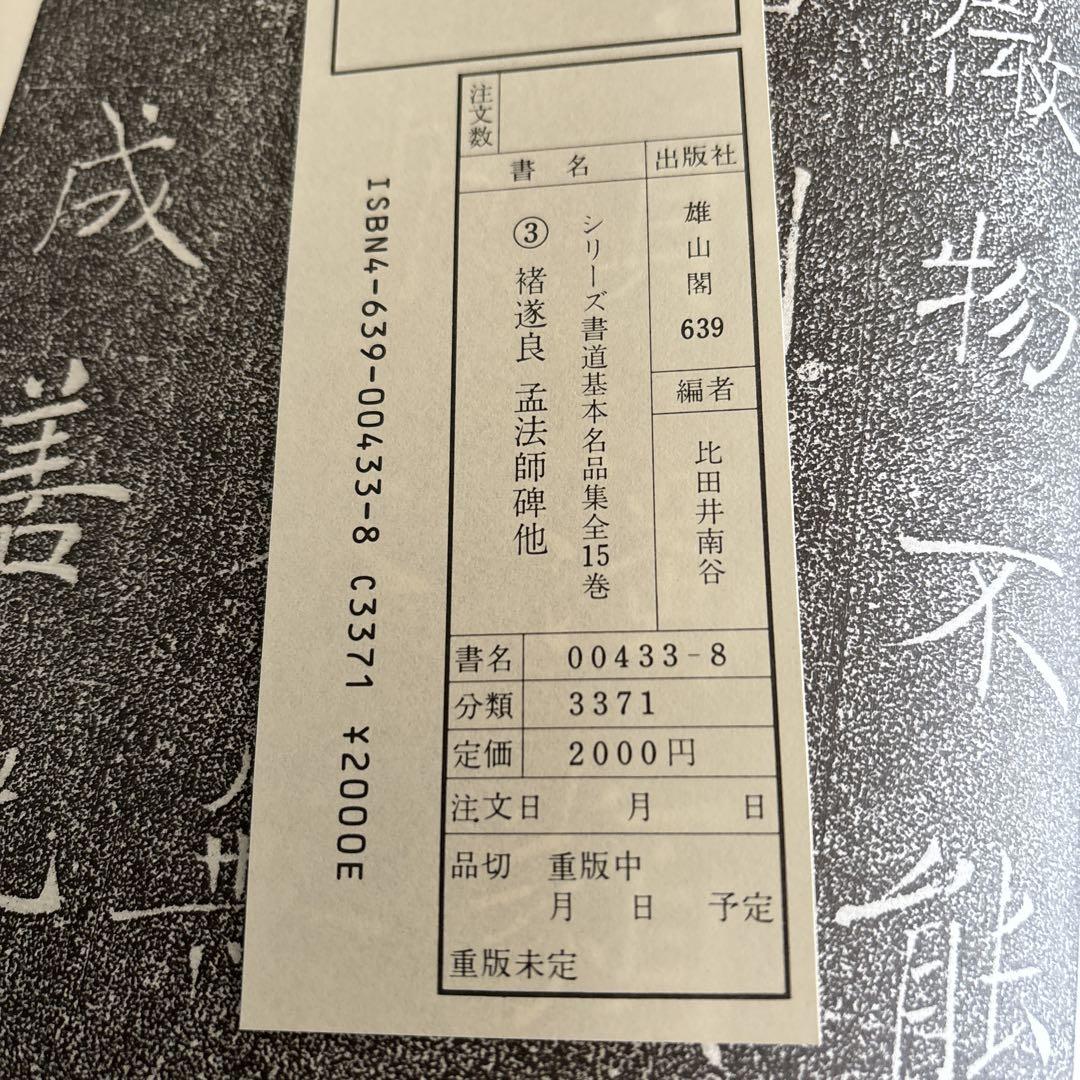 注文数
書名
出版社
シリーズ書道基本名品集全15巻
③ 褚遂良 孟法師碑他
雄山閣
639
編者
比田井南谷
書名 00433-8
分類 3371
定価 2000円
注文日 月 日
品切 重版中
月 日 予定
重版未定
ISBN4-639-00433-8 C3371 ¥2000E
物不能
成善